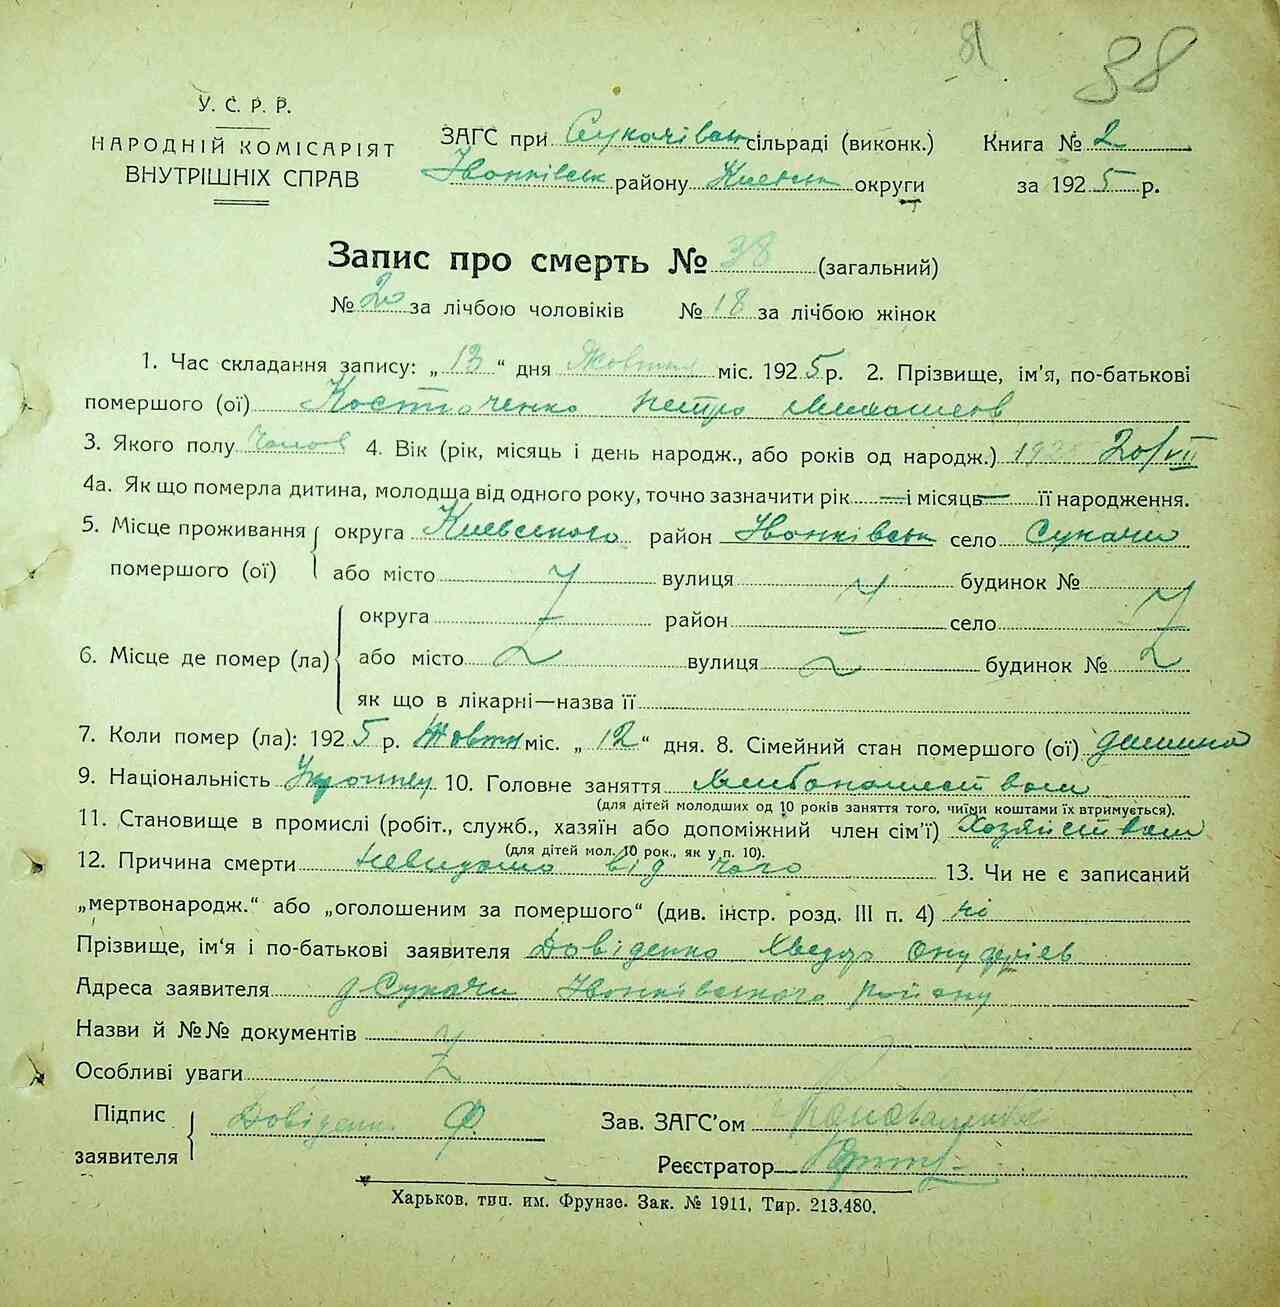 81 38
У. С. Р. Р.
НАРОДНІЙ КОМІСАРІЯТ
ВНУТРІШНІХ СПРАВ
ЗАГС при Сукачівськ сільраді (виконк.)
Іванківськ району Киевськ округи
Книга № 2
за 1925 р.
Запис про смерть № 38 (загальний)
№ 20 за лічбою чоловіків № 18 за лічбою жінок
1. Час складання запису: „13“ дня Жовтня міс. 1925 р. 2. Прізвище, ім’я, по-батькові
помершого (ої) Костюченко Петро
3. Якого полу Чолов 4. Вік (рік, місяць і день народж., або років од народж.) 1925 20/VII
4а. Як що померла дитина, молодша від одного року, точно зазначити рік — і місяць — її народження.
5. Місце проживання округа Киевського район Іванківськ село Сукачи
помершого (ої) або місто вулиця будинок №
6. Місце де помер (ла) округа район село
або місто вулиця будинок №
як що в лікарні—назва її
7. Коли помер (ла): 1925 р. Жовтн міс. „12“ дня. 8. Сімейний стан помершого (ої) дитина
9. Національність 10. Головне заняття Хлибопашеством
(для дітей молодших од 10 років заняття того, чиїми коштами їх втримується).
11. Становище в промислі (робіт., служб., хазяїн або допоміжний член сім’ї) Хозяйством
(для дітей мол. 10 рок., як у п. 10).
12. Причина смерти Невидомо від чого 13. Чи не є записаний
„мертвонародж.“ або „оголошеним за помершого“ (див. інстр. розд. III п. 4) ні
Прізвище, ім‘я і по-батькові заявителя Довіденко Хведор Онуфріев
Адреса заявителя д. Сукачи Іванківського району
Назви й №№ документів
Особливі уваги
Підпис
заявителя Довіденко Ф
Зав. ЗАГС’ом Коноваленко
Реєстратор
Харьков, тип. им. Фрунзе. Зак. № 1911, Тир. 213.480.